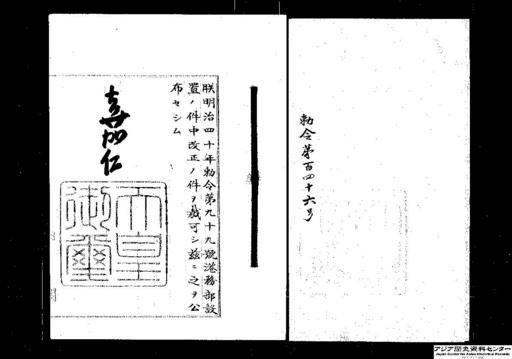 勅令第百四十六号
朕明治四十年勅令第九十九號港務部設
置ノ件中改正ノ件ヲ裁可シ茲ニ之ヲ公
布セシム
嘉仁
天皇
御璽
アジア歴史資料センター
Japan Center for Asian Historical Records